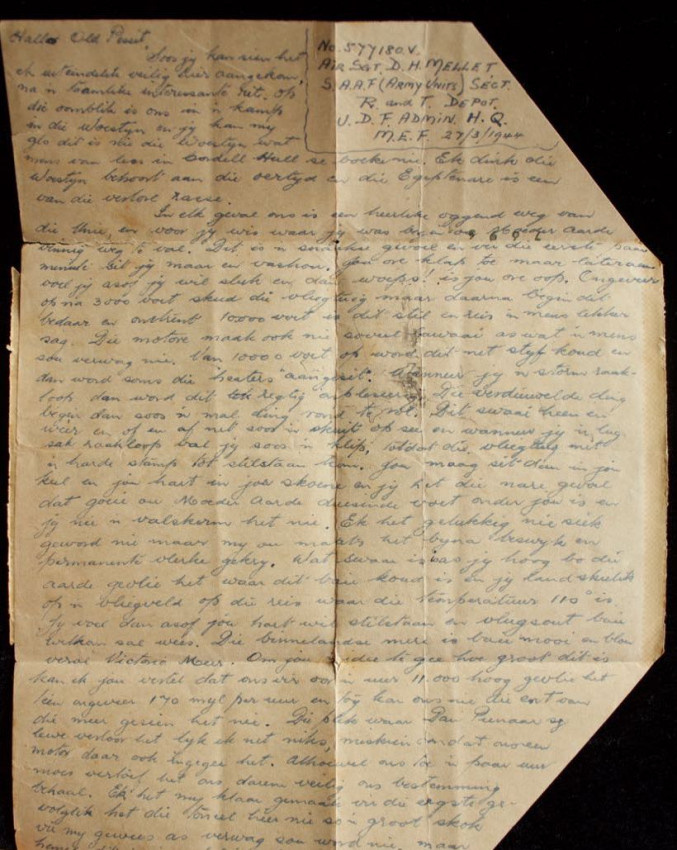 Hallo Old Pessit,
No. 577180.V.
AIR SGT. D. H. MELLET
S.A.A.F (ARMY UNITS) SECT.
R. and T. DEPOT.
U. D. F. ADMIN. H. Q.
M. E. F. 27/3/1944
Soos jy kan sien het
ek uiteindelik veilig hier aangekom,
na 'n taamlike interessante rit. Op
die oomblik is ons in 'n kamp
in die Woestyn en jy kan my
glo dit is nie die Woestyn wat
mens van lees in Cordell Hull se boeke nie. Ek dink die
Woestyn behoort aan die oertyd en die Egiptenare is een
van die verlore rasse.
In elk geval ons is een heerlike oggend weg van
die Unie, en voor jy wis waar jy was begin Moeder Aarde
vinnig weg te val. Dit is 'n snaakse gevoel en vir die eerste paar
minute sit jy maar en vashou. Jou ore klap toe maar lateraan
voel jy asof jy wil sluk en dan woeps! is jou ore oop. Ongeveer
op na 3000 voet skud die vliegtuig maar daarna begin dit
bedaar en omtrent 10000 voet is dit stil en reis 'n mens lekker
sag. Die motore maak ook nie soveel lawaai as wat 'n mens
sou verwag nie. Van 10000 voet op word dit net styf koud en
dan word soms die "heaters" aangesit. Wanneer jy 'n storm raak-
loop dan word dit tog regtig onplesierig. Die verdieuwelde ding
begin dan soos 'n mal ding rond te rol. Dit swaai heen en
weer en op en af net soos 'n skuit op see en wanneer jy 'n lug-
sak raakloop val jy soos 'n klip, totdat die vliegtuig met
'n harde stamp tot stilstaan kom. Jou maag sit dan in jou
keel en jou hart in jou skoene en jy het die nare gevoel
dat goeie ou Moeder Aarde duisende voet onder jou is en
jy nie 'n valskerm het nie. Ek het gelukkig nie siek
geword nie maar my ou maats het byna beswyk en
permanente vlerke gekry. Wat swaar is as jy hoog bo die
aarde gevlie het waar dit baie koud is en jy land skielik
op 'n vliegveld op die reis waar die temperatuur 110° is.
Jy voel dan asof jou hart wil stilstaan en vliegsout baie
welkom sal wees. Die binnelandse mere is baie mooi en blou
veral Victoria Meer. Om jou 'n idee te gee hoe groot dit is
kan ek jou vertel dat ons vir oor 'n uur 11000 hoog gevlie het
teen ongeveer 170 myl per uur en tog kan ons nie die eort van
die meer gesien het nie. Die plek waar Dan Pienaar sy
lewe verloor het lyk ek net niks, miskien omdat ons een
motor daar ook ingegee het. Alhoewel ons toe 'n paar uur
moes vertoef het ons darem veilig ons bestemming
behaal. Ek het my klaar gemaak vir die ergste ge-
volglik het die toneel hier nie so 'n groot skok
vir my gewees as verwag sou word nie, maar